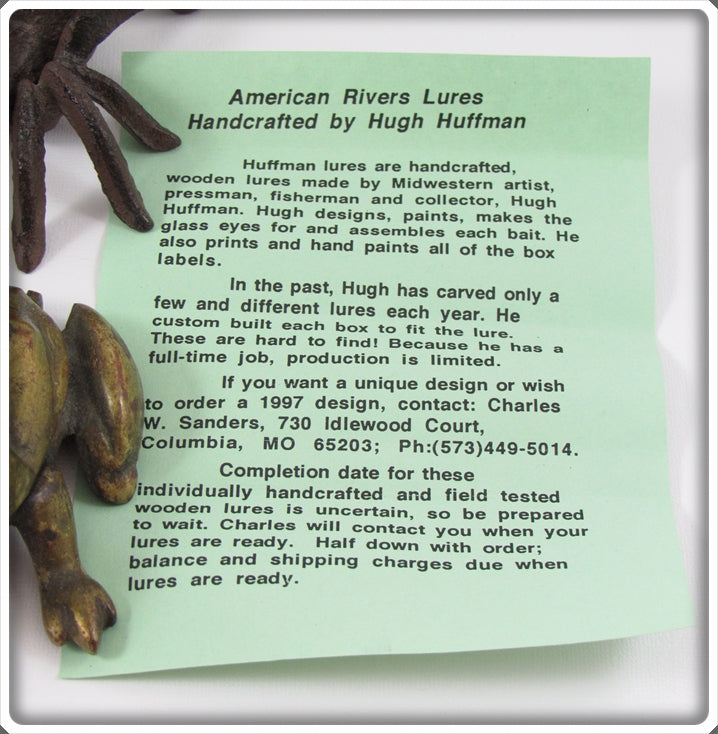 American Rivers Lures
Handcrafted by Hugh Huffman
Huffman lures are handcrafted,
wooden lures made by Midwestern artist,
pressman, fisherman and collector, Hugh
Huffman. Hugh designs, paints, makes the
glass eyes for and assembles each bait. He
also prints and hand paints all of the box
labels.
In the past, Hugh has carved only a
few and different lures each year. He
custom built each box to fit the lure.
These are hard to find! Because he has a
full-time job, production is limited.
If you want a unique design or wish
to order a 1997 design, contact: Charles
W. Sanders, 730 Idlewood Court,
Columbia, MO 65203; Ph:(573)449-5014.
Completion date for these
individually handcrafted and field tested
wooden lures is uncertain, so be prepared
to wait. Charles will contact you when your
lures are ready. Half down with order;
balance and shipping charges due when
lures are ready.